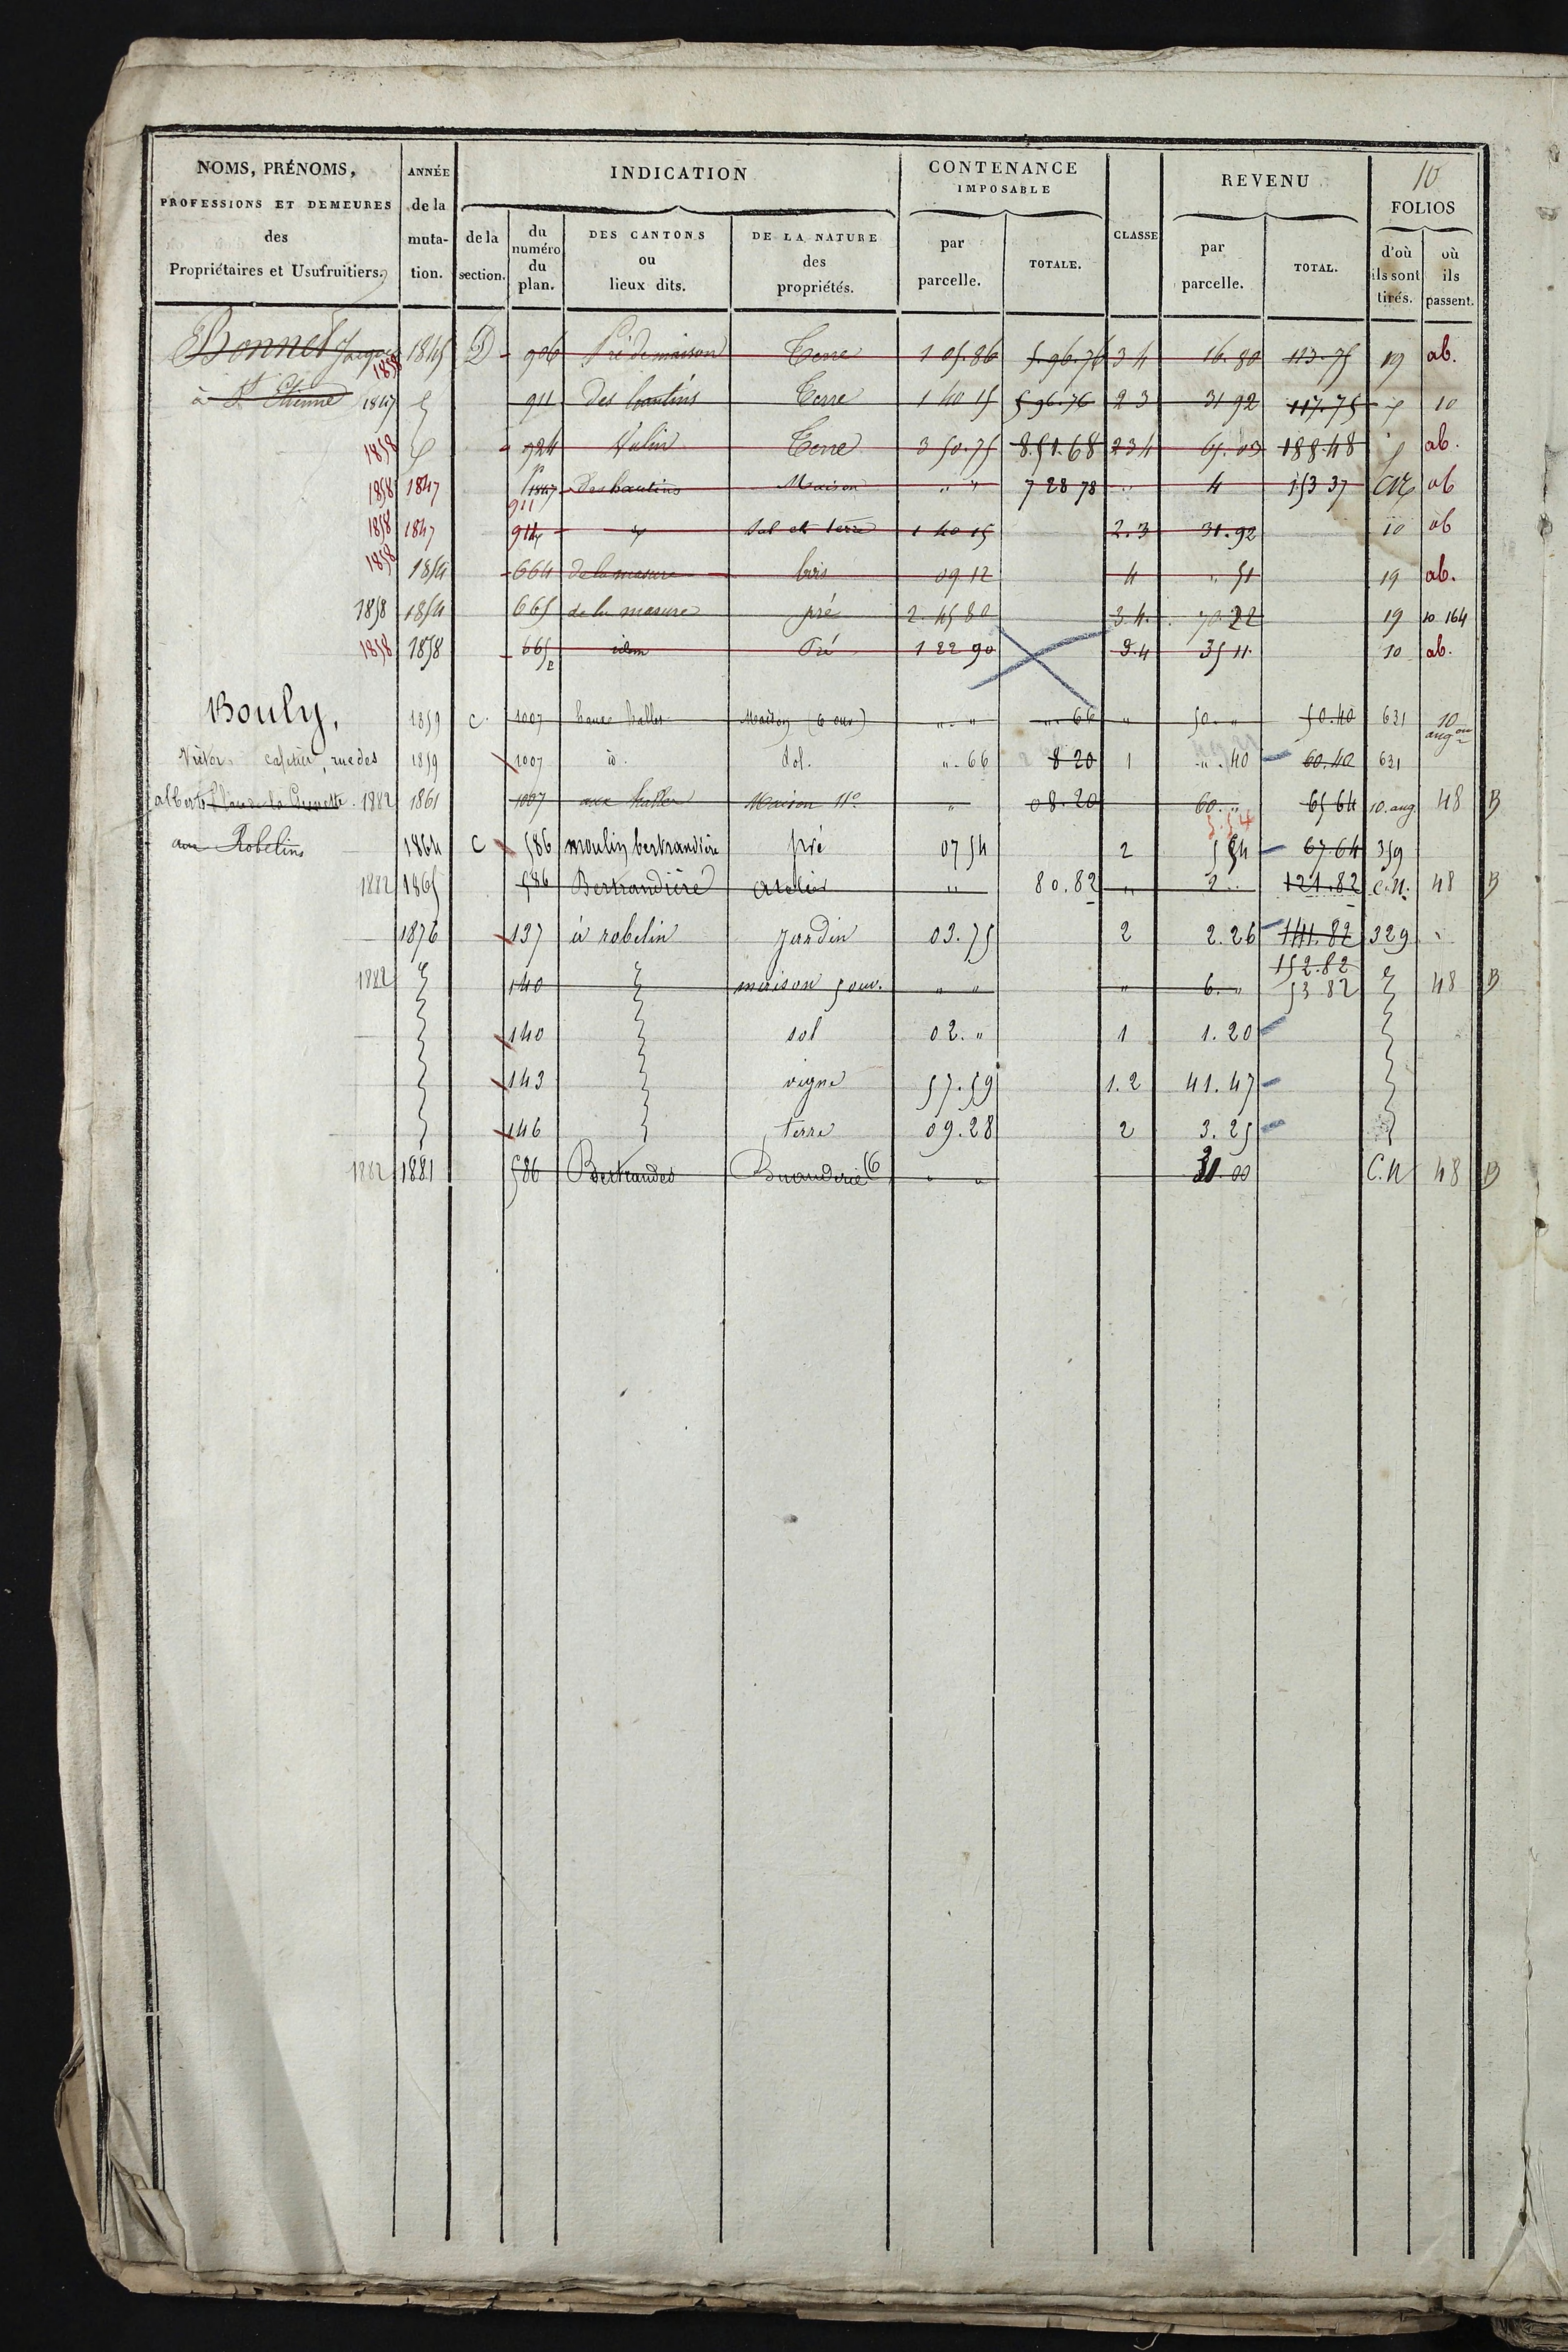 10
NOMS, PRÉNOMS, PROFESSIONS ET DEMEURES des Propriétaires et Usufruitiers.
ANNÉE de la mutation.
INDICATION
de la section.
du numéro du plan.
DES CANTONS ou lieux dits.
DE LA NATURE des propriétés.
CONTENANCE IMPOSABLE
par parcelle.
TOTALE.
CLASSE
REVENU
par parcelle.
TOTAL.
FOLIOS
d'où ils sont tirés.
où ils passent.
Bonnet Jacques 1858 1845 D 906 Pré de maison Terre 1 05.86 5.96.76 3 4 16.80 113.75 19 ab.
à St Etienne 1847 911 des hautins Terre 1 40 15 5 96.76 2 3 31 92 117.75 10
1858 924 Valin Terre 3 50.75 8.51.68 2 3 4 65.03 188.48 ab.
1858 1847 911 des hautins Maison " " 7 28 78 " 4 153 37 ab
1858 1847 911 Sol et terre 1 40 15 2.3 31.92 10 ab
1858 1854 664 de la masure bois 09 12 4 " 51 19 ab.
1858 1854 665 de la masure pré 2.45 80 3.4. 70 22 19 10 164
1858 1858 665 idem Pré 1 22 90 3.4 35 11 10 ab.
Bouly, 1859 C. 1007 Maison (6 ouv) ".." "..66 " 50.." 50.40 631 10 augon
cafetier, rue des 1859 1007 id. Sol. "..66 8 20 1 "..40 60.40 631
alberts 1882 1861 1007 aux halles Maison 11o " 08.20 60.." 65 64 10.aug. 48 B
aux Robelins 1864 C 586 moulin bertrandière pré 07 54 2 5.54 5 54 67.64 359
1882 1865 586 Bertrandière atelier " 80.82 " 2.. 121.82 C.N. 48 B
1876 137 à robelin jardin 03.75 2 2.26 141.82 329
1882 140 maison 5 ouv. " " " 6." 152.82 53 82 48 B
140 sol 02." 1 1.20
143 vigne 57.59 1.2 41.47
146 terre 09.28 2 3.25
1882 1881 586 Bertrandes Buanderie (6 " " 30.00 C.N 48 B